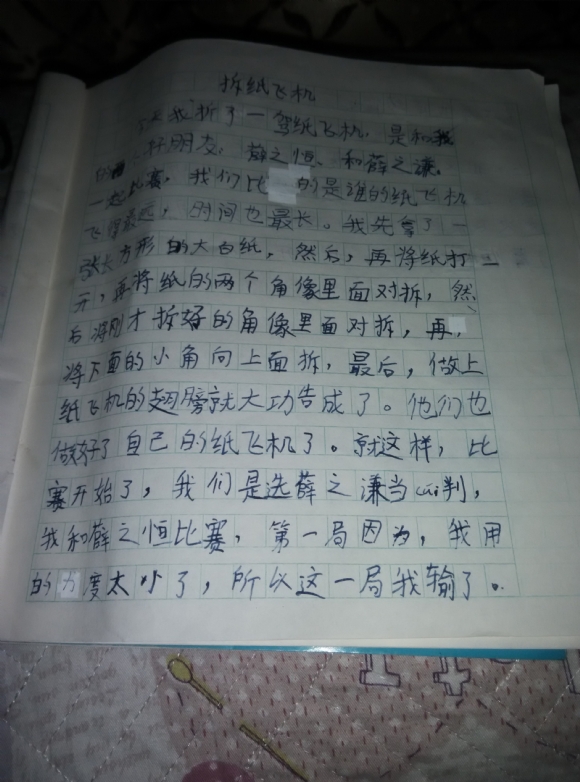 拆纸飞机
我折了一驾纸飞机，是和我
好朋友，薛之恒、和薛之谦，
一起比赛，我们比的是谁的纸飞机
飞得最远，时间也最长。我先拿了一
张长方形的大白纸，然后，再将纸打
开，再将纸的两个角像里面对拆，然
后将刚才拆好的角像里面对拆，再
将下面的小角向上面拆，最后，做上
纸飞机的翅膀就大功告成了。他们也
做好了自己的纸飞机了。就这样，比
赛开始了，我们是选薛之谦当cui判，
我和薛之恒比赛，第一局因为，我用
的力度太小了，所以这一局我输了。